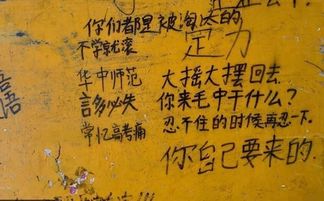 你们都是被淘汰的
不学就滚
定力
华中师范
言多必失
常忆高考痛
大摇大摆回去
你来毛中干什么？
忍不住的时候再忍一下。
你自己要来的